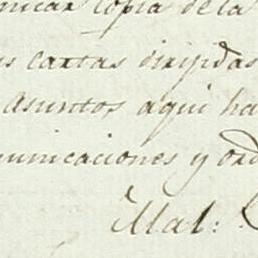 nicar copia de la
s cartas dirijidas
asuntos aqui ha
unicaciones y ord
Mal: